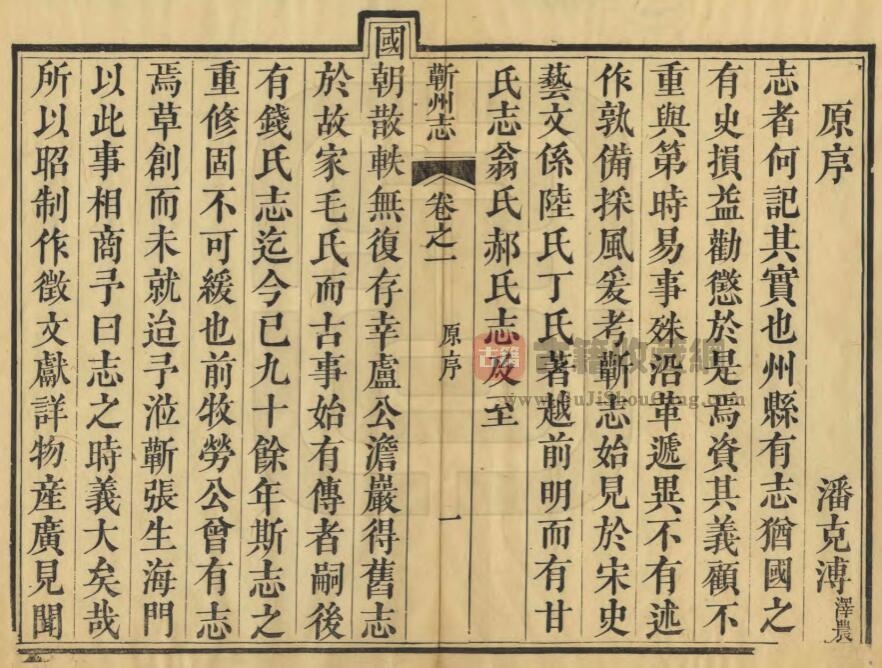 原序 潘克溥 澤農
志者何記其實也州縣有志猶國之
有史損益勸懲於是焉資其義顧不
重與第時易事殊沿革遞異不有述
作孰備採風爰考蘄志始見於宋史
藝文係陸氏丁氏著越前明而有甘
氏志翁氏郝氏志及至
蘄州志 卷之一 原序 一
國朝散軼無復存幸盧公澹巖得舊志
於故家毛氏而古事始有傳者嗣後
有錢氏志迄今已九十餘年斯志之
重修固不可緩也前牧勞公曾有志
焉草創而未就迨予涖蘄張生海門
以此事相商予曰志之時義大矣哉
所以昭制作徵文獻詳物産廣見聞
古籍
古籍收藏網
www.GuJiShouCang.com